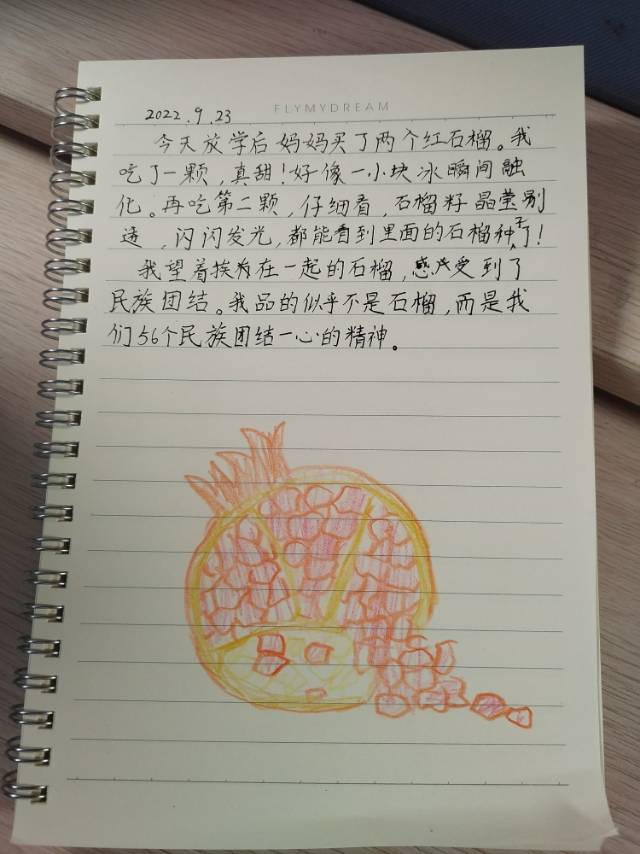 FLYMYDREAM
2022.9.23
今天放学后妈妈买了两个红石榴。我
吃了一颗,真甜!好像一小块冰瞬间融
化。再吃第二颗,仔细看,石榴籽晶莹剔
透,闪闪发光,都能看到里面的石榴种子了!
我望着挨在一起的石榴,感受到了
民族团结。我品的似乎不是石榴,而是我
们56个民族团结一心的精神。